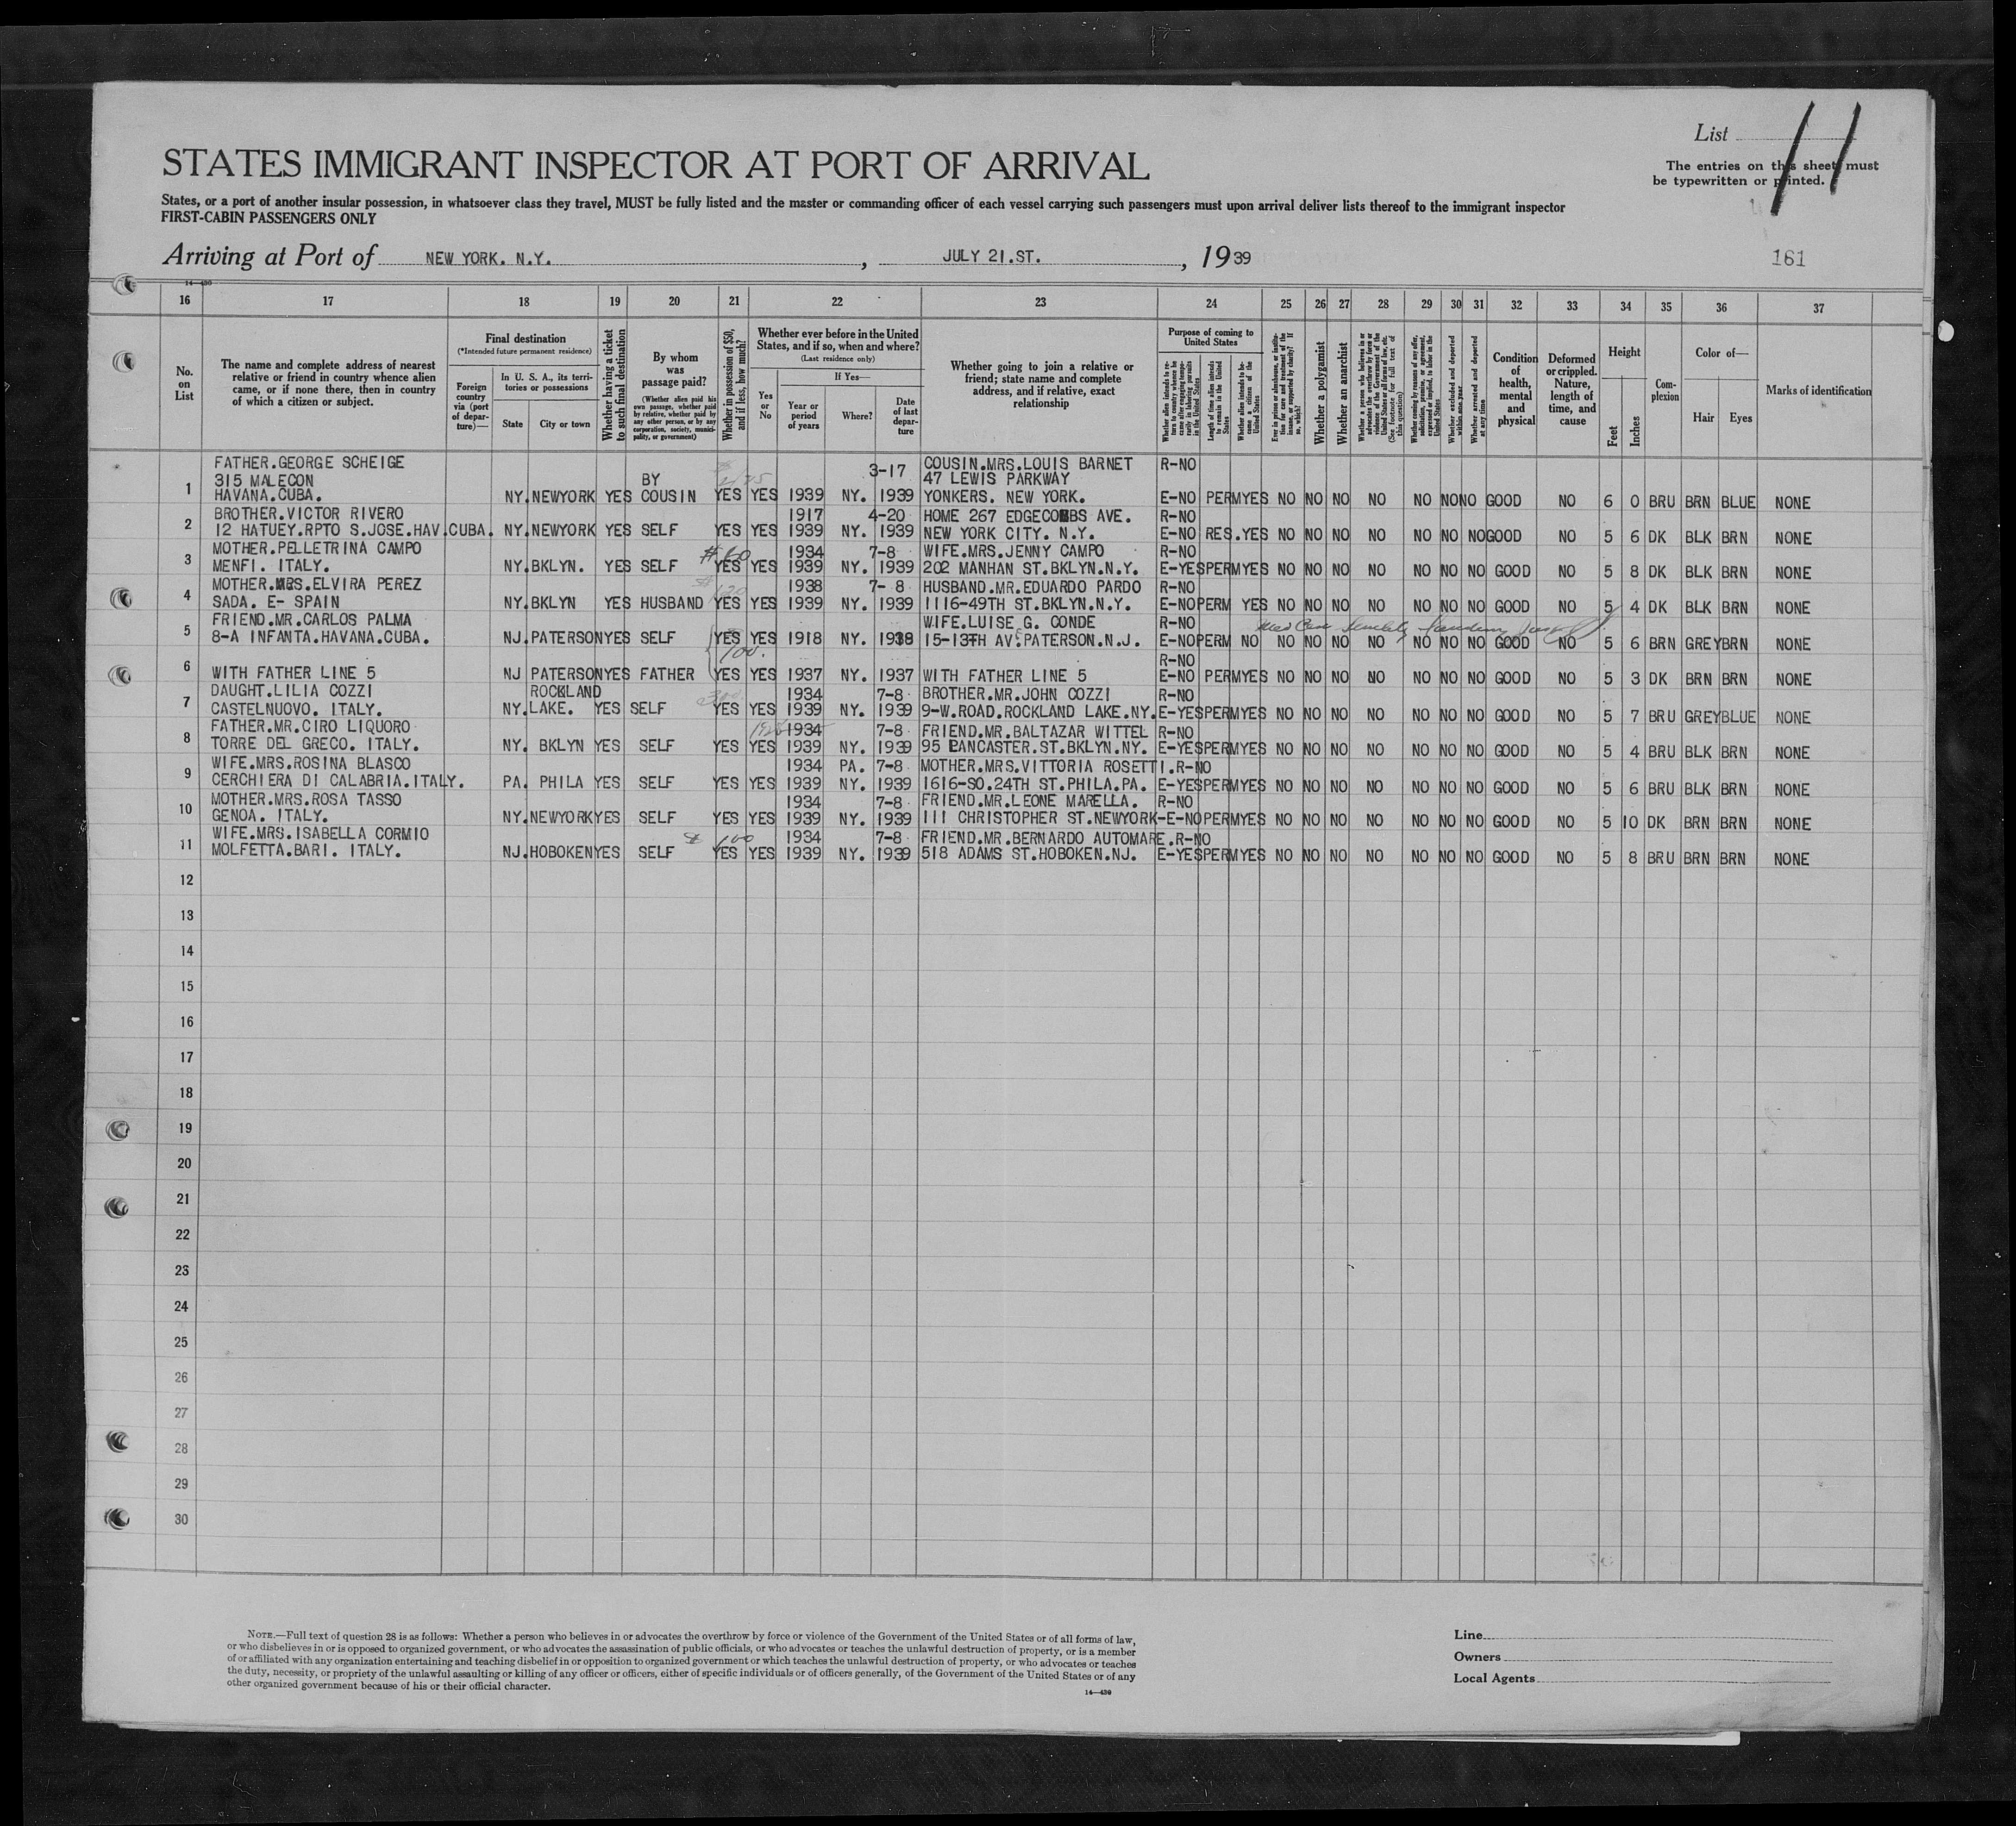 List 11
STATES IMMIGRANT INSPECTOR AT PORT OF ARRIVAL
The entries on this sheet must
be typewritten or printed.
States, or a port of another insular possession, in whatsoever class they travel, MUST be fully listed and the master or commanding officer of each vessel carrying such passengers must upon arrival deliver lists thereof to the immigrant inspector
FIRST-CABIN PASSENGERS ONLY
Arriving at Port of NEW YORK. N.Y. , JULY 21.ST. , 1939
161
14—430
16 17 18 19 20 21 22 23 24 25 26 27 28 29 30 31 32 33 34 35 36 37
No. on List
The name and complete address of nearest relative or friend in country whence alien came, or if none there, then in country of which a citizen or subject.
Final destination
(*Intended future permanent residence)
Foreign country via (port of departure)—
In U. S. A., its territories or possessions
State
City or town
Whether having a ticket to such final destination
By whom was passage paid?
(Whether alien paid his own passage, whether paid by relative, whether paid by any other person, or by any corporation, society, municipality, or government)
Whether in possession of $50, and if less, how much?
Whether ever before in the United States, and if so, when and where?
(Last residence only)
Yes or No
If Yes—
Year or period of years
Where?
Date of last departure
Whether going to join a relative or friend; state name and complete address, and if relative, exact relationship
Purpose of coming to United States
Whether alien intends to return to country whence he came after engaging temporarily in laboring pursuits in the United States
Length of time alien intends to remain in the United States
Whether alien intends to become a citizen of the United States
Ever in prison or almshouse, or institution for care and treatment of the insane, or supported by charity? If so, which?
Whether a polygamist
Whether an anarchist
Whether a person who believes in or advocates the overthrow by force or violence of the Government of the United States or all forms of law, etc. (See footnote for full text of this question)
Whether coming by reasons of any offer, solicitation, promise, or agreement, expressed or implied, to labor in the United States
Whether excluded and deported within one year
Whether arrested and deported at any time
Condition of health, mental and physical
Deformed or crippled. Nature, length of time, and cause
Height
Feet
Inches
Complexion
Color of—
Hair
Eyes
Marks of identification
FATHER.GEORGE SCHEIGE COUSIN.MRS.LOUIS BARNET R-NO
315 MALECON BY 3-17 47 LEWIS PARKWAY
1 HAVANA.CUBA. NY. NEWYORK YES COUSIN YES YES 1939 NY. 1939 YONKERS. NEW YORK. E-NO PERM YES NO NO NO NO NO NO NO GOOD NO 6 0 BRU BRN BLUE NONE
BROTHER.VICTOR RIVERO 1917 4-20 HOME 267 EDGECOMBS AVE. R-NO
2 12 HATUEY.RPTO S.JOSE.HAV.CUBA. NY. NEWYORK YES SELF YES YES 1939 NY. 1939 NEW YORK CITY. N.Y. E-NO RES. YES NO NO NO NO NO NO NO GOOD NO 5 6 DK BLK BRN NONE
MOTHER.PELLETRINA CAMPO 1934 7-8 WIFE.MRS.JENNY CAMPO R-NO
3 MENFI. ITALY. NY. BKLYN. YES SELF YES YES 1939 NY. 1939 202 MANHAN ST.BKLYN.N.Y. E-YES PERM YES NO NO NO NO NO NO NO GOOD NO 5 8 DK BLK BRN NONE
$60
MOTHER.MRS.ELVIRA PEREZ 1938 7-8 HUSBAND.MR.EDUARDO PARDO R-NO
4 SADA. E- SPAIN NY. BKLYN YES HUSBAND YES YES 1939 NY. 1939 1116-49TH ST.BKLYN.N.Y. E-NO PERM YES NO NO NO NO NO NO NO GOOD NO 5 4 DK BLK BRN NONE
FRIEND.MR.CARLOS PALMA WIFE.LUISE G. CONDE R-NO
5 8-A INFANTA.HAVANA.CUBA. NJ. PATERSON YES SELF YES YES 1918 NY. 1938 15-13TH AV.PATERSON.N.J. E-NO PERM NO NO NO NO NO NO NO NO GOOD NO 5 6 BRN GREY BRN NONE
100.
R-NO
6 WITH FATHER LINE 5 NJ PATERSON YES FATHER YES YES 1937 NY. 1937 WITH FATHER LINE 5 E-NO PERM YES NO NO NO NO NO NO NO GOOD NO 5 3 DK BRN BRN NONE
DAUGHT.LILIA COZZI ROCKLAND 1934 7-8 BROTHER.MR.JOHN COZZI R-NO
7 CASTELNUOVO. ITALY. NY. LAKE. YES SELF YES YES 1939 NY. 1939 9-W.ROAD.ROCKLAND LAKE.NY. E-YES PERM YES NO NO NO NO NO NO NO GOOD NO 5 7 BRU GREY BLUE NONE
FATHER.MR.CIRO LIQUORO 1934 7-8 FRIEND.MR.BALTAZAR WITTEL R-NO
8 TORRE DEL GRECO. ITALY. NY. BKLYN YES SELF YES YES 1939 NY. 1939 95 LANCASTER.ST.BKLYN.NY. E-YES PERM YES NO NO NO NO NO NO NO GOOD NO 5 4 BRU BLK BRN NONE
WIFE.MRS.ROSINA BLASCO 1934 PA. 7-8 MOTHER.MRS.VITTORIA ROSETTI.R-NO
9 CERCHIERA DI CALABRIA.ITALY. PA. PHILA YES SELF YES YES 1939 NY. 1939 1616-SO.24TH ST.PHILA.PA. E-YES PERM YES NO NO NO NO NO NO NO GOOD NO 5 6 BRU BLK BRN NONE
MOTHER.MRS.ROSA TASSO 1934 7-8 FRIEND.MR.LEONE MARELLA. R-NO
10 GENOA. ITALY. NY. NEWYORK YES SELF YES YES 1939 NY. 1939 111 CHRISTOPHER ST.NEWYORK-E-NO PERM YES NO NO NO NO NO NO NO GOOD NO 5 10 DK BRN BRN NONE
WIFE.MRS.ISABELLA CORMIO $ 100 1934 7-8 FRIEND.MR.BERNARDO AUTOMARE.R-NO
11 MOLFETTA.BARI. ITALY. NJ. HOBOKEN YES SELF YES YES 1939 NY. 1939 518 ADAMS ST.HOBOKEN.NJ. E-YES PERM YES NO NO NO NO NO NO NO GOOD NO 5 8 BRU BRN BRN NONE
12
13
14
15
16
17
18
19
20
21
22
23
24
25
26
27
28
29
30
NOTE.—Full text of question 28 is as follows: Whether a person who believes in or advocates the overthrow by force or violence of the Government of the United States or of all forms of law,
or who disbelieves in or is opposed to organized government, or who advocates the assassination of public officials, or who advocates or teaches the unlawful destruction of property, or is a member
of or affiliated with any organization entertaining and teaching disbelief in or opposition to organized government or which teaches the unlawful destruction of property, or who advocates or teaches
the duty, necessity, or propriety of the unlawful assaulting or killing of any officer or officers, either of specific individuals or of officers generally, of the Government of the United States or of any
other organized government because of his or their official character.
14—430
Line
Owners
Local Agents